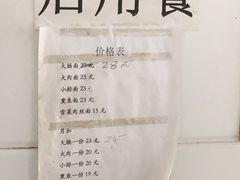 后用餐
价格表
大肠面 27元 28元
大肉面 25元
小排面 25元
熏鱼面 23元
雪菜肉丝面 15元
另加
大肠一份 23元 24元
大肉一份 20元
小排一份 20元
熏鱼一份 19元